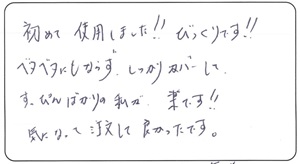 初めて 使用しました!! びっくりです!!
ベタベタにもならず、しっかりカバーして、
すっぴんばかりの私が、楽です!!
気になって注文して良かったです。